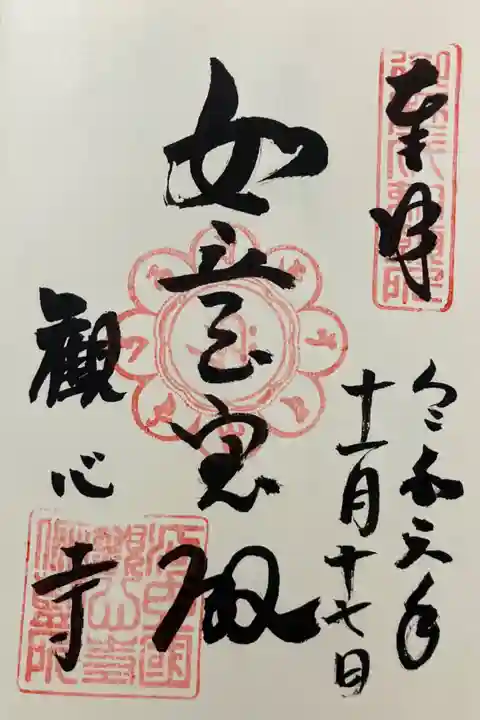 奉拝
令和元年
十一月十七日
如意宝殿
観心寺